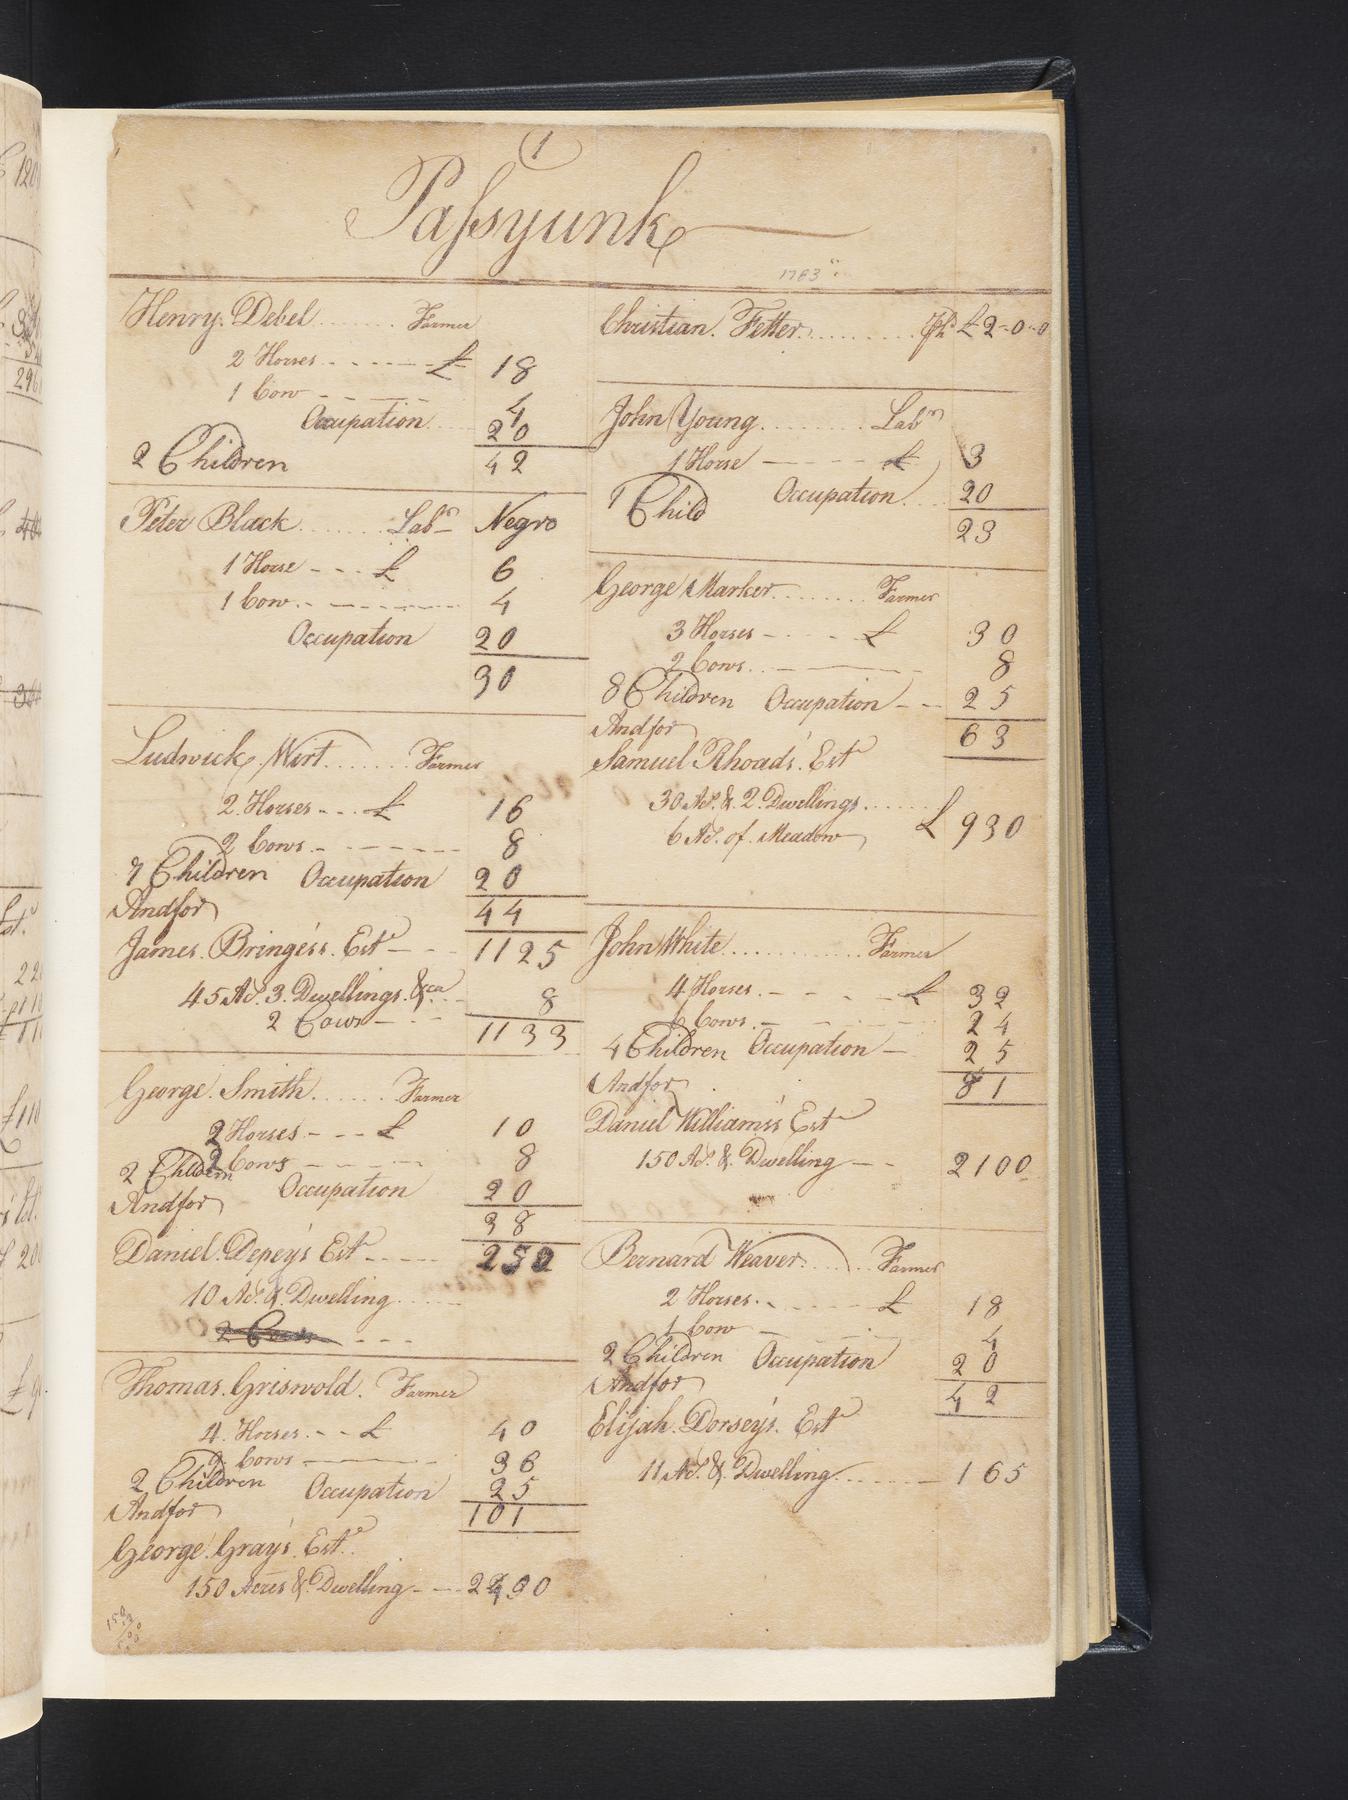 1
Passyunk
1783
Henry Debel ....... Farmer
2 Horses - - - - - £ 18
1 Cow - - - - 4
Occupation ... 20
2 Children 42
Peter Black ....... Labr Negro
1 Horse - - - £ 6
1 Cow - - - - - 4
Occupation 20
30
Ludwick Wirt ....... Farmer
2 Horses - - - £ 16
2 Cows - - - - - 8
7 Children Occupation 20
And for 44
James Bringes's Este - - - 1125
45 As. 3 Dwellings &ca ... 8
2 Cows - - - 1133
George Smith ...... Farmer
2 Horses - - - £ 10
2 Cows - - - - 8
2 Children
Occupation 20
And for 38
Daniel Depey's Est - - - - 250
10 As. & Dwelling ....
2 Cows - - -
Thomas Griswold. Farmer
4 Horses - - £ 40
9 Cows 36
2 Children Occupation 25
And for 101
George Gray's Este
150 Acres & Dwelling - - -
Christian Fetter .......... £ 2-0-0
John Young ......... Labr
1 Horse - - - - £ 3
1 Child Occupation .... 20
23
George Marker ........ Farmer
3 Horses - - - - £ 30
2 Cows 8
8 Children Occupation - - - 25
And for 63
Samuel Rhoads's Este
30 As. & 2 Dwellings ......
6 As. of Meadow £ 930
John White ............. Farmer
4 Horses - - - - £ 32
6 Cows - - - - 24
4 Children Occupation - 25
And for 81
Daniel Williams's Este
150 As. & Dwelling - - 2100
Bernard Weaver ....... Farmer
2 Horses - - - - - £ 18
1 Cow 4
2 Children Occupation 20
And for 42
Elijah Dorsey's Este
11 As. & Dwelling ...... 165